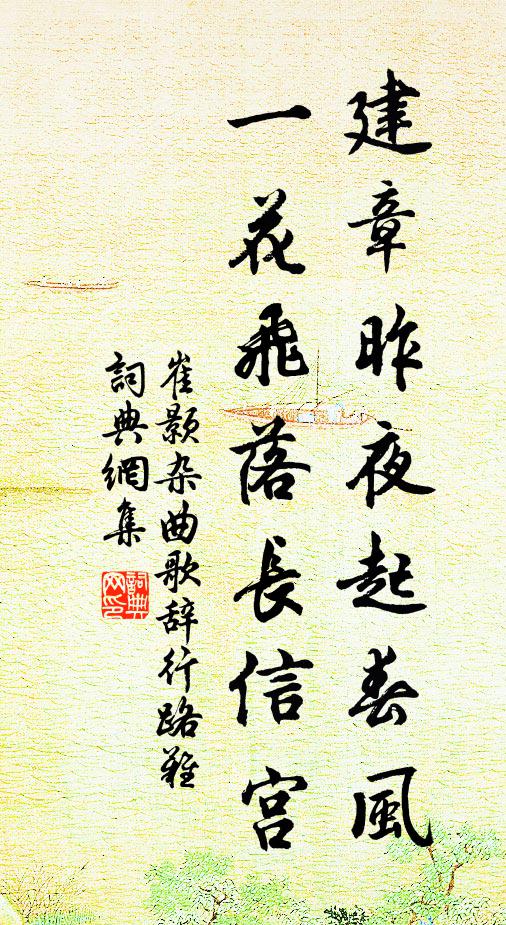 建章昨夜起春風
一花飛落長信宮
崔顥杂曲歌辞行路難
詞典網集
詞典网印